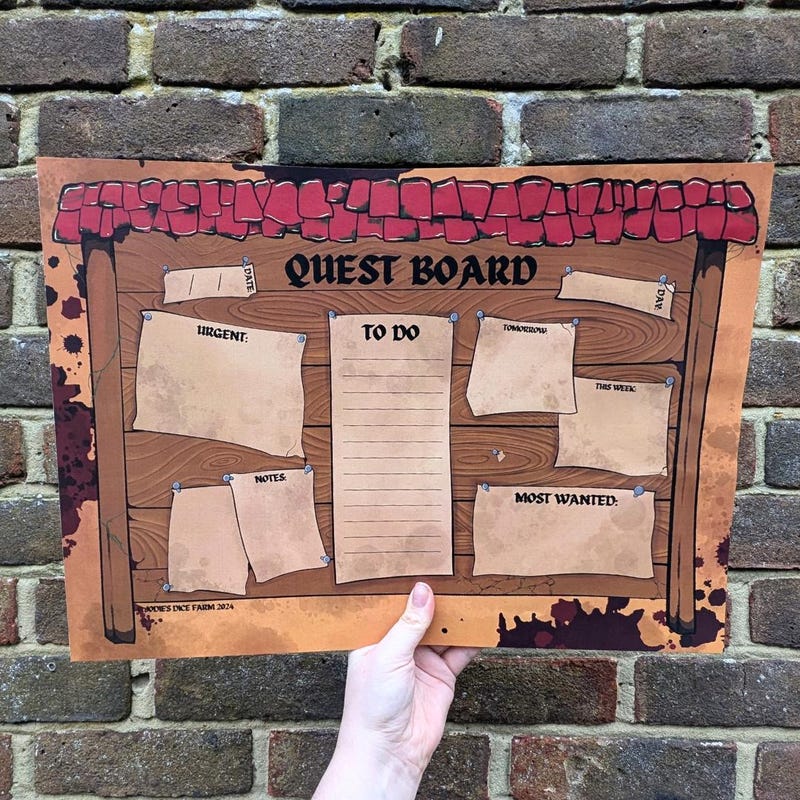 QUEST BOARD
DATE:
DAY:
URGENT:
TO DO
TOMORROW:
THIS WEEK:
NOTES:
MOST WANTED:
JODIE'S DICE FARM 2024